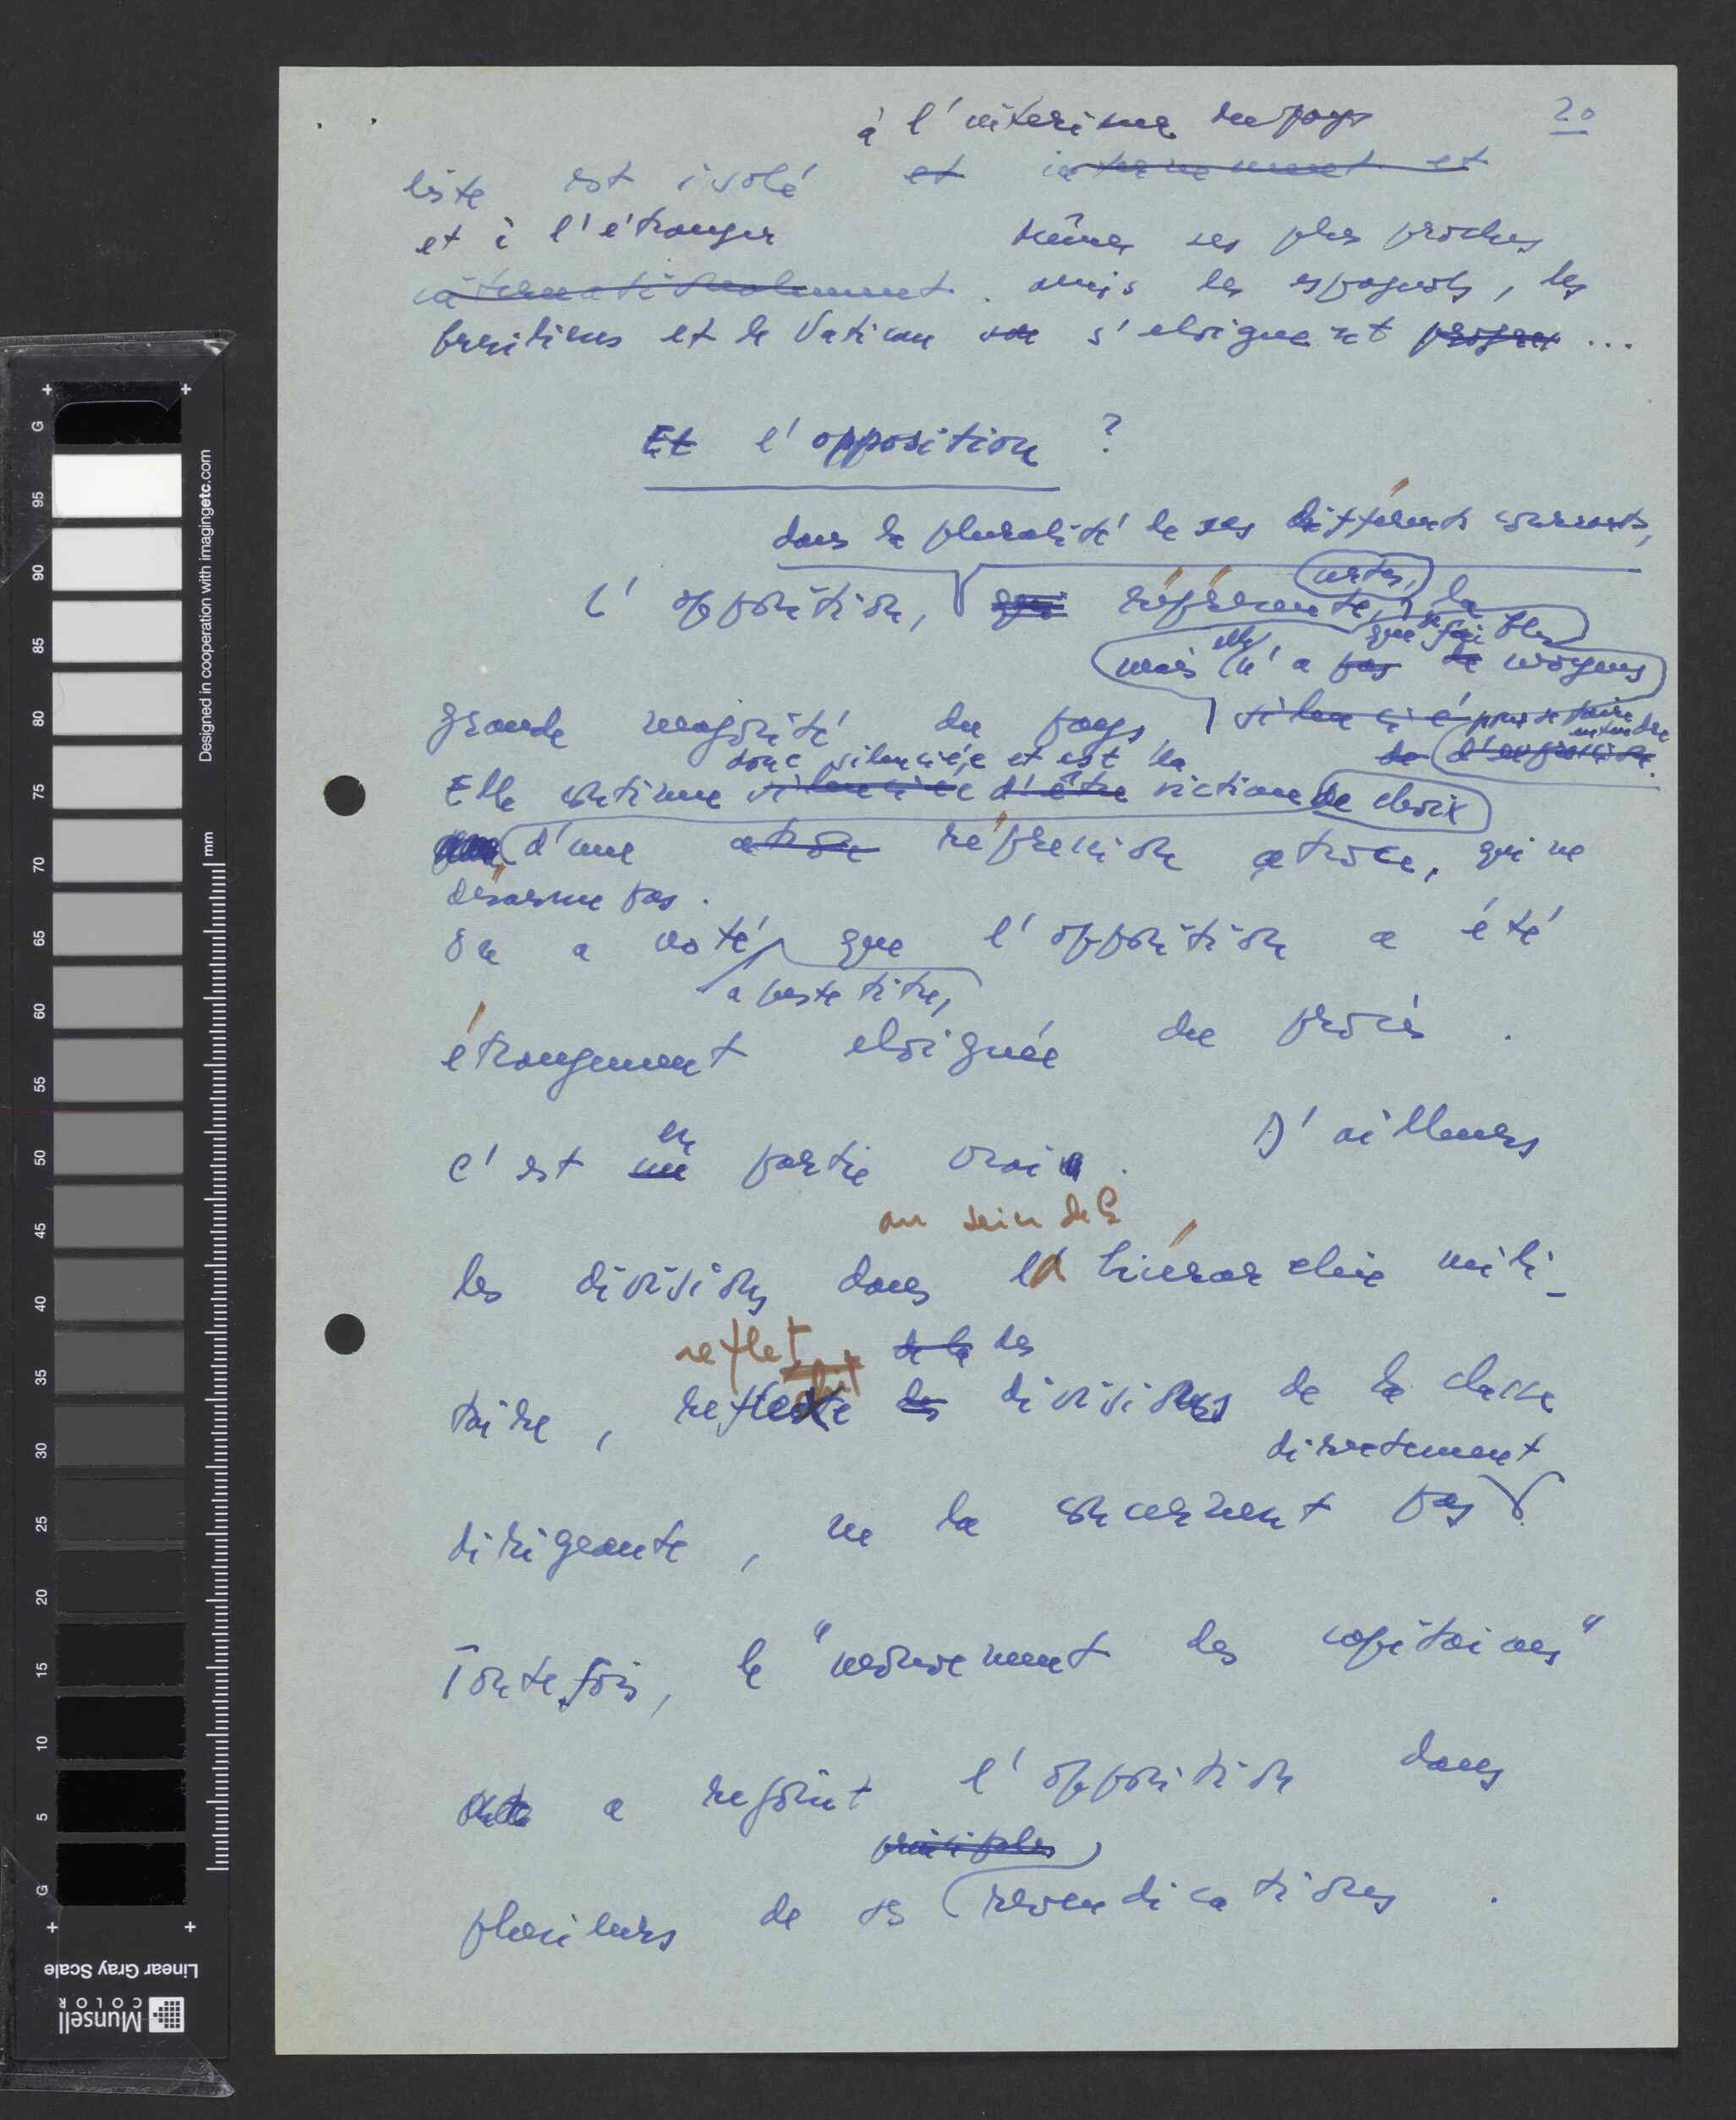 20
à l'intérieur du pays
liste est isolé et internement et
et à l'étranger même ses plus proches
internationalement. amis les espagnols, les
brésiliens et le Vatican s'eloignent ...
Et l'opposition ?
dans la pluralité de ses différents courants,
L'opposition, qui représente, certes, la
que de faibles
mais elle n'a pas de moyens
grande majorité du pays, silencié pour se faire entendre
donc silenciée et est la de d'expression.
Elle continue silenciée d'être victime de choix
d'une atroce répression atroce, qui ne
désarme pas.
On a noté que l'opposition a été
a juste titre,
étrangement eloignée du procès.
en
C'est une partie vrai. D'ailleurs
au sein de la
les divisions dans la hiérarchie mili-
reflet de la des
taire, reflexe des divisions de la classe
directement
dirigeante, ne la concernent pas.
Toutefois, le "mouvement des capitaines"
a rejoint l'opposition dans
principales
plusieurs de ses revendications.
Designed in cooperation with imagingetc.com
mm
G 95 90 85 80 75 70 65 60 55 50 45 40 35 30 25 20 15 10 5 G
Linear Gray Scale
Munsell
COLOR